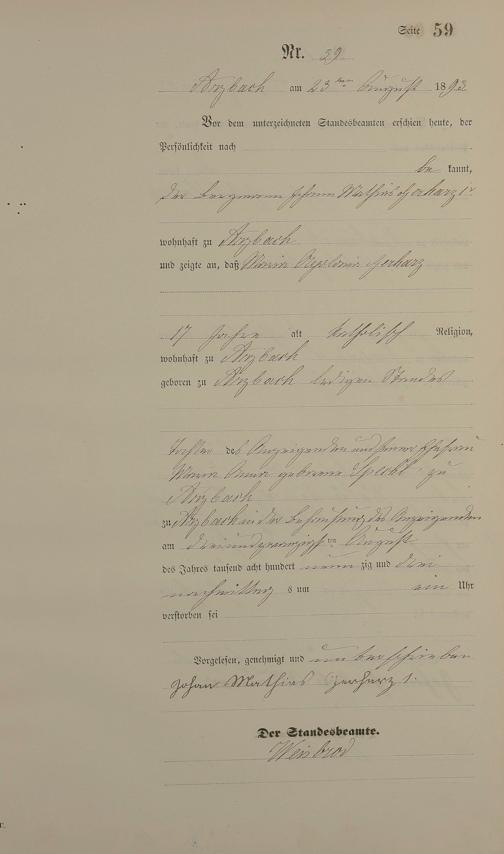 Seite 59
Nr. 29
Arzbach am 23ten August 1893
Vor dem unterzeichneten Standesbeamten erschien heute, der
Persönlichkeit nach
be kannt,
der Bergmann Johann Mathias Gerharz 1r
wohnhaft zu Arzbach
und zeigte an, daß Maria Apolonia Gerharz
17 Jahre alt katholisch Religion,
wohnhaft zu Arzbach
geboren zu Arzbach ledigen Standes
Tochter des Anzeigenden und seiner Ehefrau
Maria Anna geborene zu
Arzbach
zu Arzbach in der Behausung des Anzeigenden
am dreiundzwanzigsten August
des Jahres tausend acht hundert neun zig und drei
nachmittags um ein Uhr
verstorben sei
Vorgelesen, genehmigt und unterschrieben
Johan Mathias Gerharz 1.
Der Standesbeamte.
Weisbrod